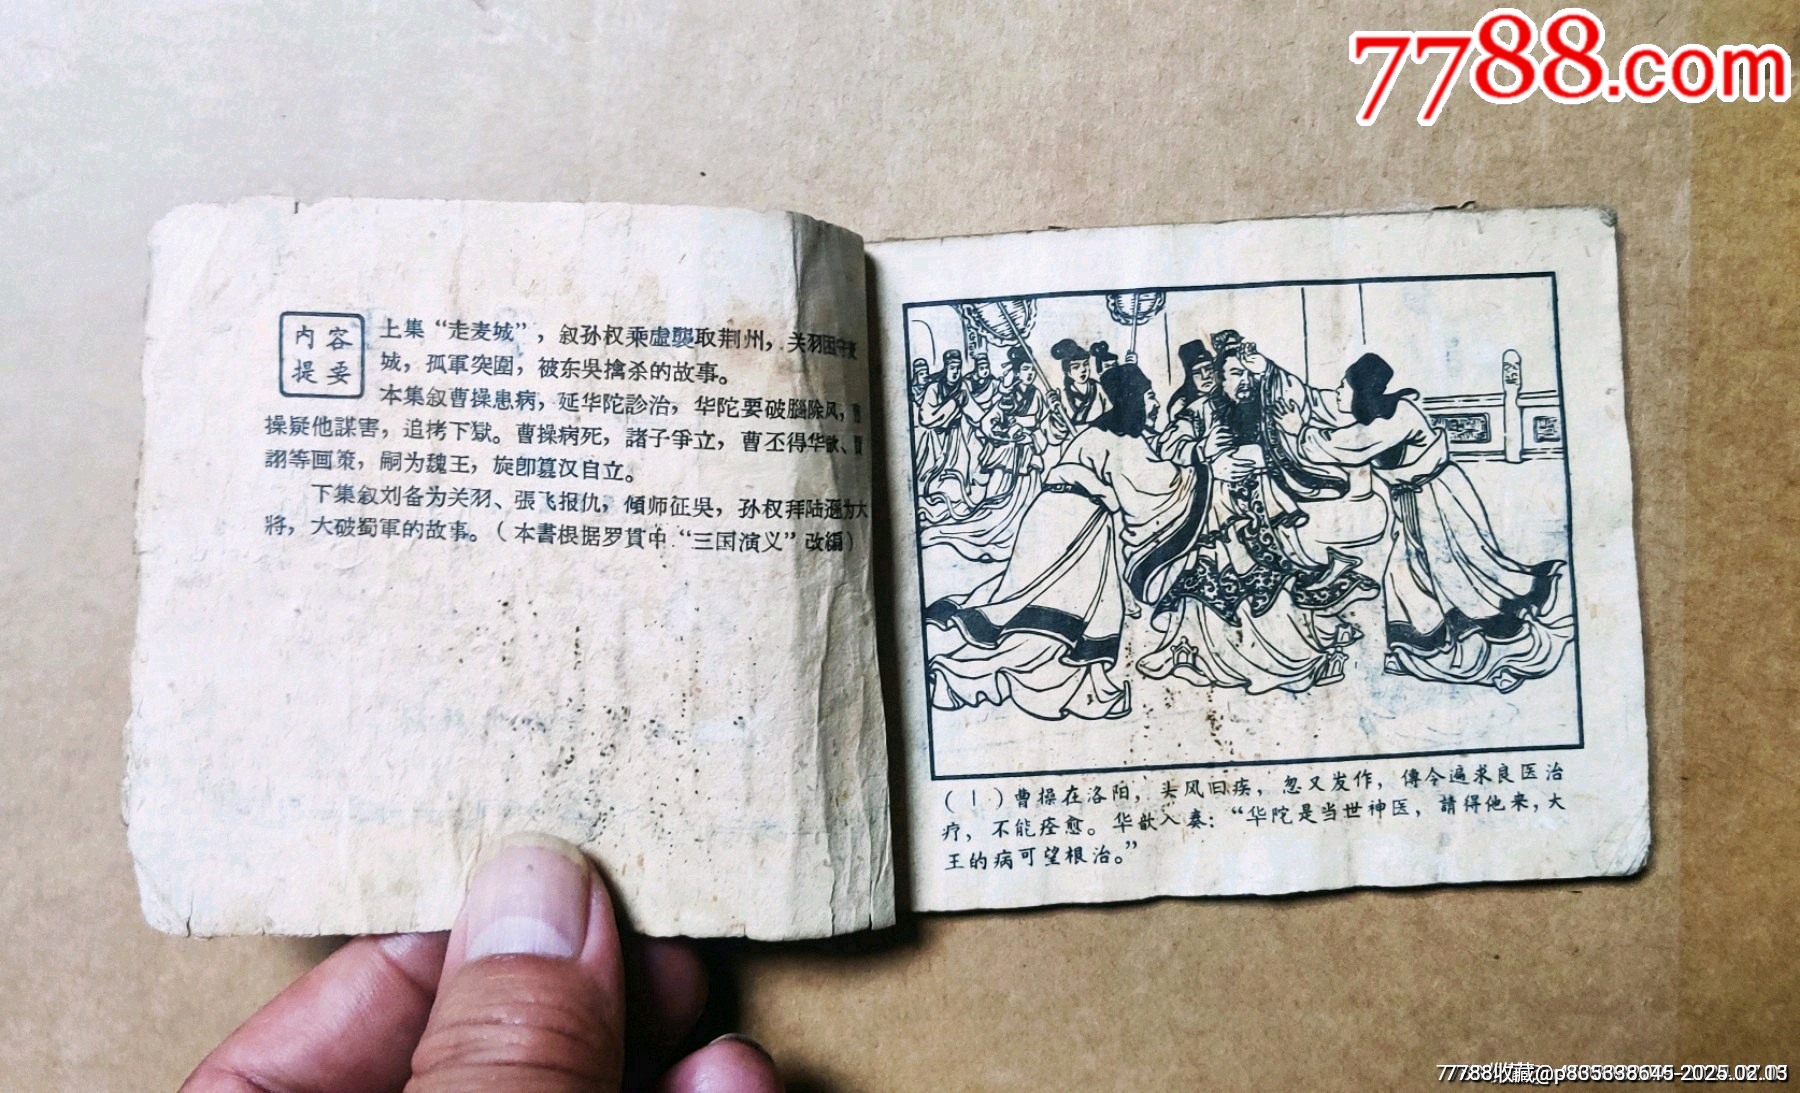 7788.com
内容
提要
上集“走麦城”，叙孙权乘虚襲取荆州，关羽困守麦
城，孤軍突圍，被东吳擒杀的故事。
本集叙曹操患病，延华陀診治，华陀要破腦除风，
操疑他謀害，追拷下獄。曹操病死，諸子爭立，曹丕得华歆、賈
詡等画策，嗣为魏王，旋卽篡汉自立。
下集叙刘备为关羽、張飞报仇，傾师征吳，孙权拜陆遜为大
將，大破蜀軍的故事。（本書根据罗貫中“三国演义”改編）
（1）曹操在洛阳，头风旧疾，忽又发作，傳令遍求良医治
疗，不能痊愈。华歆入奏：“华陀是当世神医，請得他来，大
王的病可望根治。”